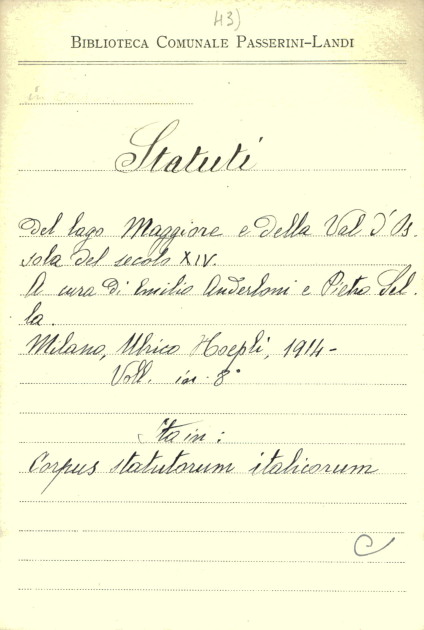 43)
BIBLIOTECA COMUNALE PASSERINI-LANDI
in
Statuti
del lago Maggiore e della Val d'Os-
sola del secolo XIV.
A cura di Emilio Anderloni e Pietro Sel-
la.
Milano, Ulrico Hoepli, 1914-
Voll. in-8°
Sta in:
Corpus statutorum italicorum
C